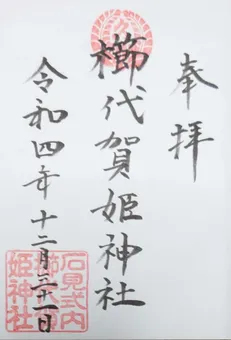 奉拝
櫛代賀姫神社
令和四年十二月三十一日
石見式内
櫛代賀
姫神社